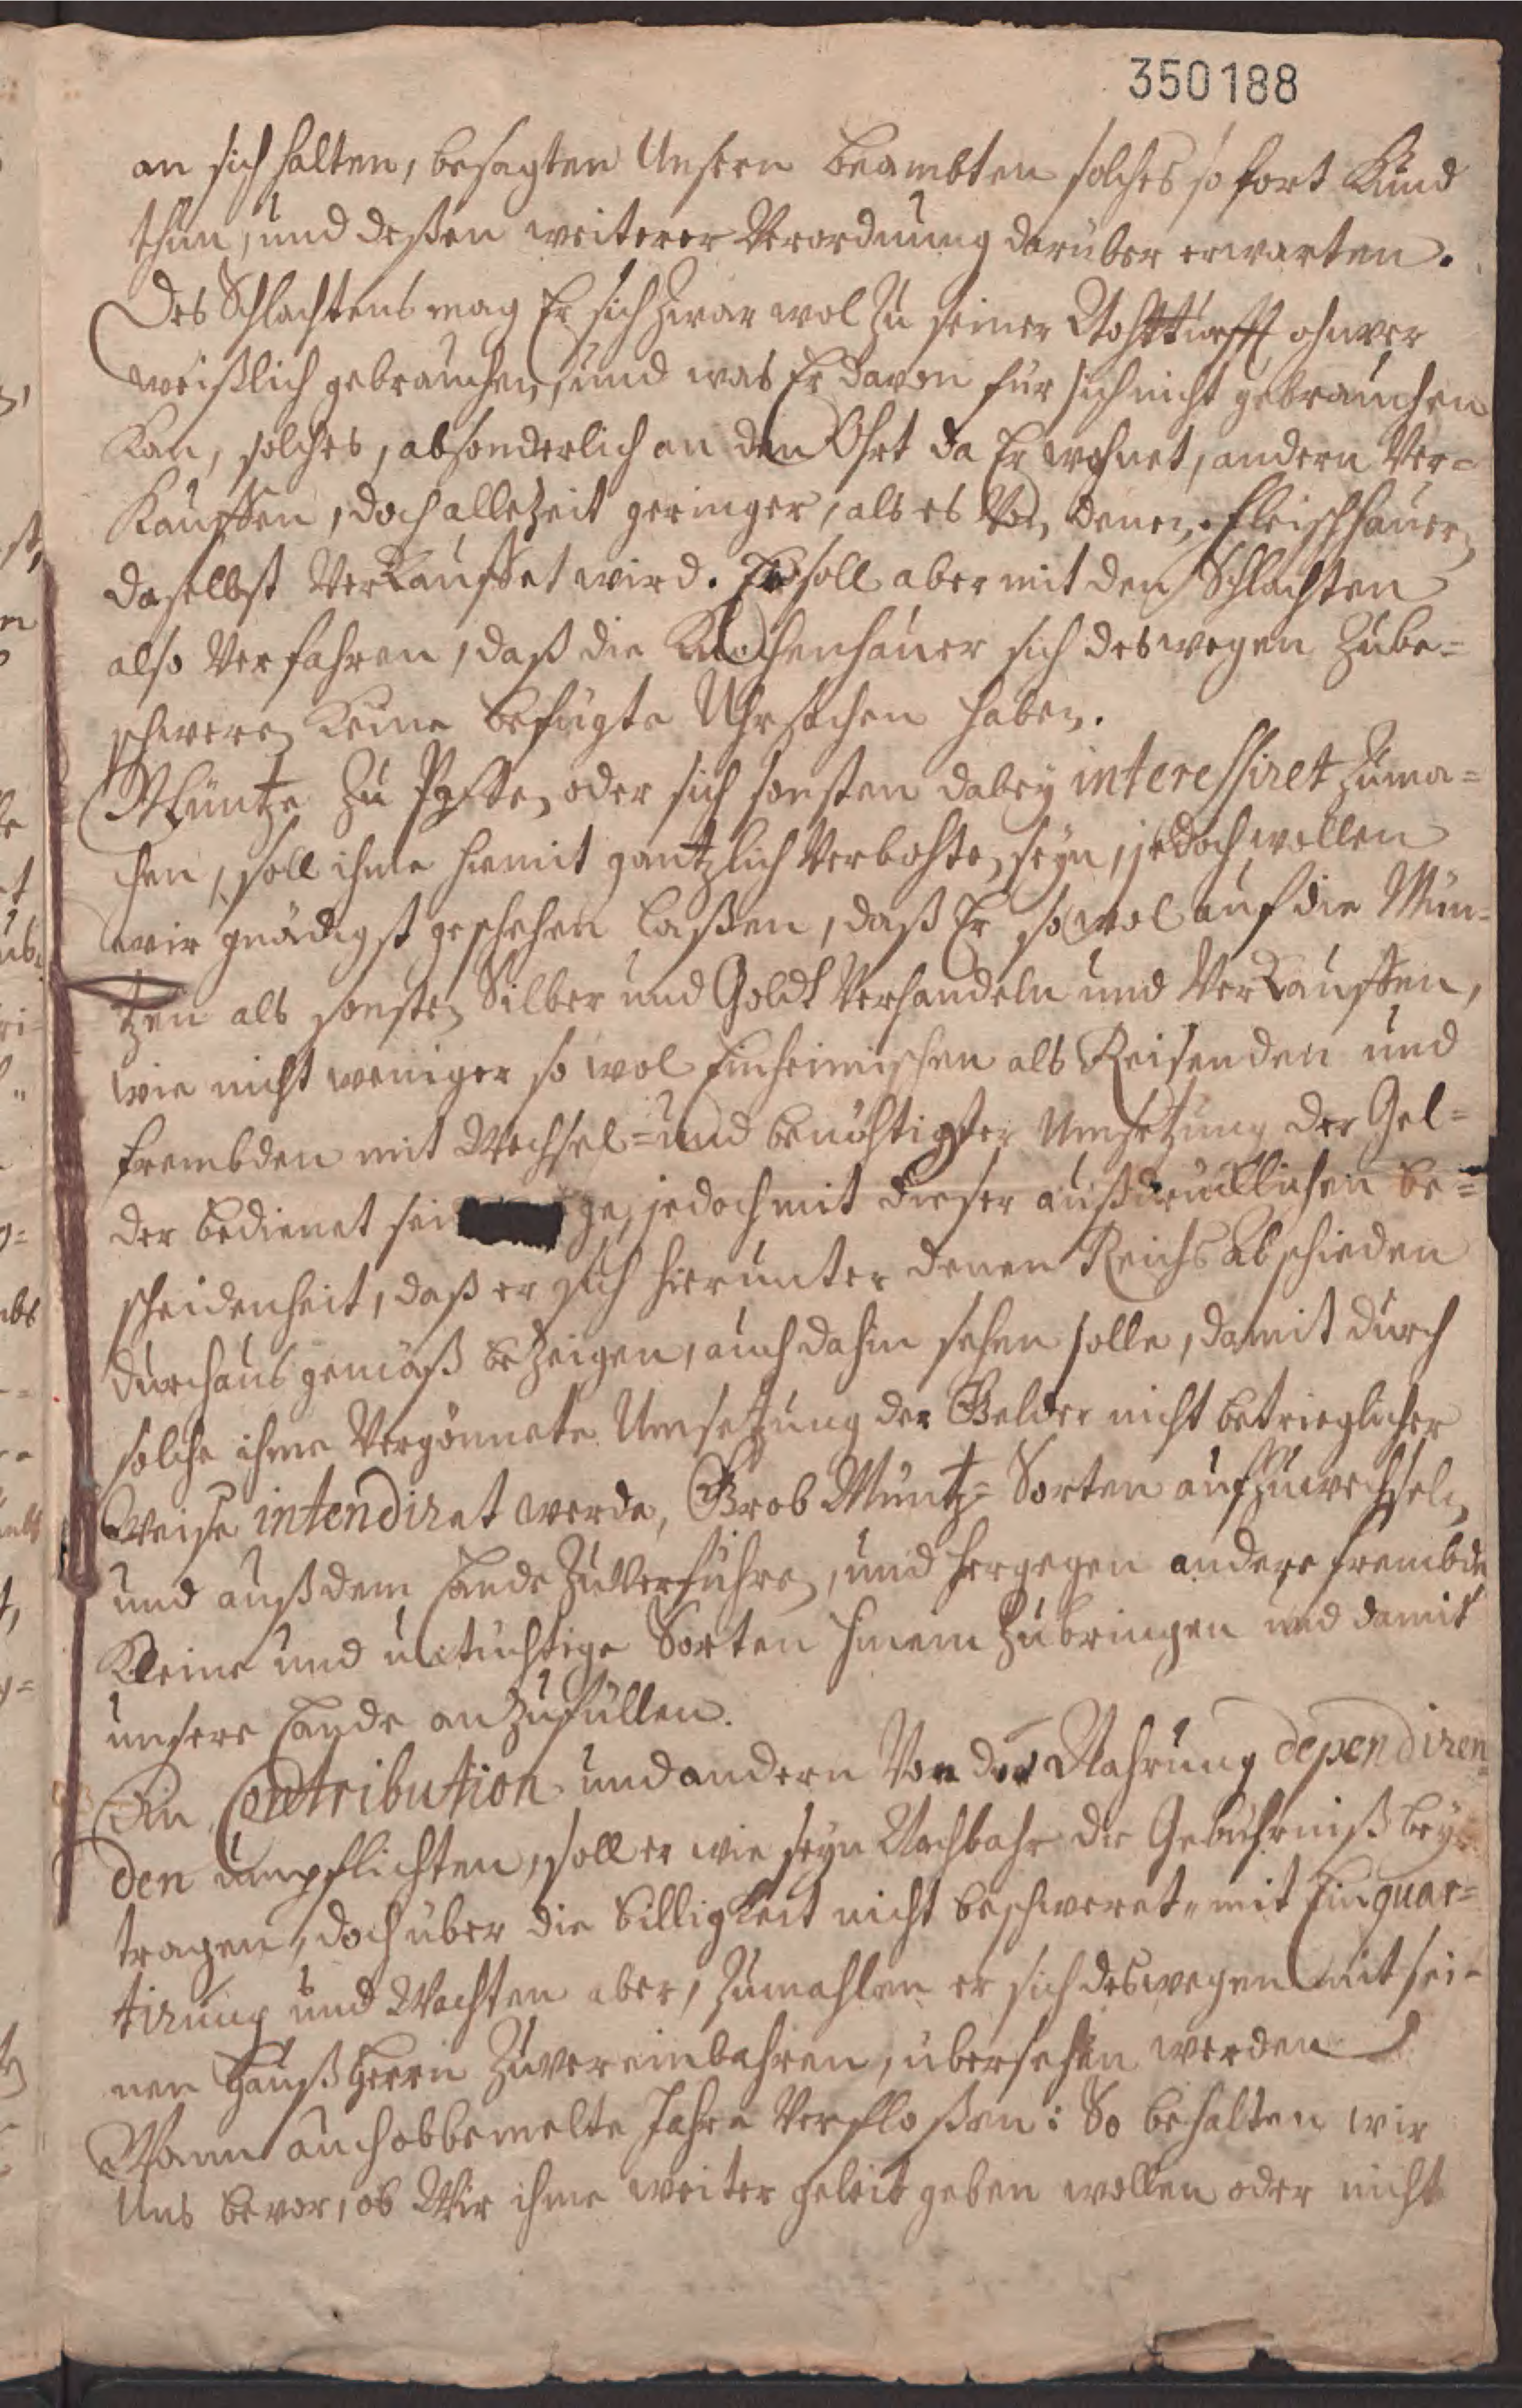 350188
an sich halten, besagten Unsern Beambten solches so fort Kund
thun, und deßen weiterer Verordnung darüber erwarten.
Des Schlachtens mag Er sich zwar wol zu seiner Nohtturfft ohnver
weißlich gebrauchen, und was Er davon für sich nicht gebrauchen
Kan, solches, absonderlich an den Ohrt da Er wohnet, andern Ver=
Kauffen, doch allezeit geringer, als es Von denen Fleischhauern
daselbst Verkauffet wird. Er soll aber mit den Schlachten
also Verfahren, daß die Knochenhauer sich deswegen zube=
schweren Keine befugte Uhrsachen haben.
Müntze zu Paßen oder sich sonsten dabey interessiret zuma=
chen, soll ihme hiemit gantzlich Verbohten seyn, jedoch wollen
wir gnädigst geschehen laßen, daß Er so wol auf die Mün=
tzen als sonsten Silber und Goldt Verhandeln und Verkauffen,
wie nicht weniger so wol Einheimischen als Reisenden und
frembden mit Wechsel= und benöhtigter Umsetzung der Gel=
der bedienet sei ge, jedoch mit dieser außdrucklichen be=
scheidenheit, daß er sich hierunter denen Reichs Abschieden
durchaus gemäß bezeigen, auch dahin sehen solle, damit durch
solche ihme Vergönnete Umsetzung der Gelder nicht betrieglicher
Weise intendiret werde, Grob Müntz= Sorten aufzuwechseln,
und auß dem Lande zuverführen, und hergegen andere frembde
Kleine und untüchtige Sorten hinein zubringen und damit
unsere Lande anzufüllen.
Zu Contribution und andern Von der Nahrung dependiren=
den umpflichten, soll er wie seyn Nachbahr die Gebührniß bey=
tragen, doch über die Billigkeit nicht beschweret, mit Einquar=
tirung und Wachten aber, zumahlen er sich deswegen mit sei=
nen Hauß Herrn zuvereinbahren, übersehen werden
Wann auch obbemelte Jahre Verfloßen: So behalten wir
Uns bevor, ob Wir ihme weiter geleit geben wollen oder nicht